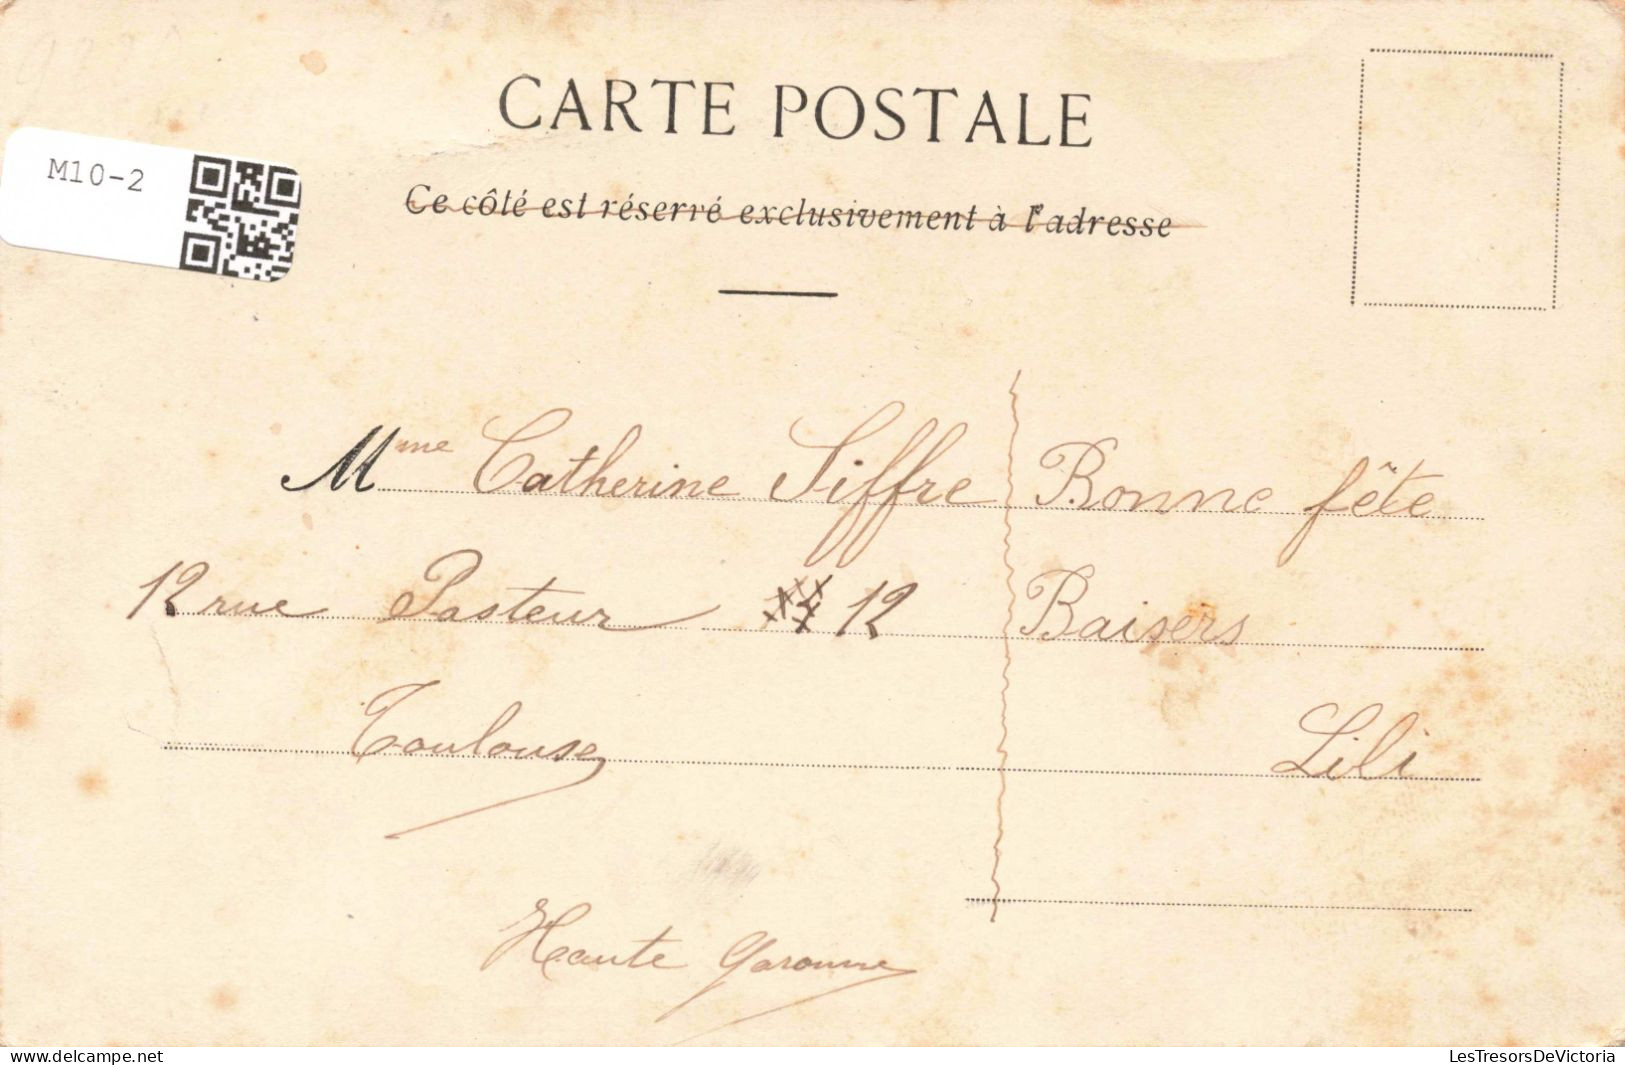 CARTE POSTALE
M10-2
Ce côté est réservé exclusivement à l'adresse
Mme Catherine Siffre
12 rue Pasteur 12
Toulouse
Haute Garonne
Bonne fête
Baisers
Lili
delcampe.net
LesTresorsDeVictoria